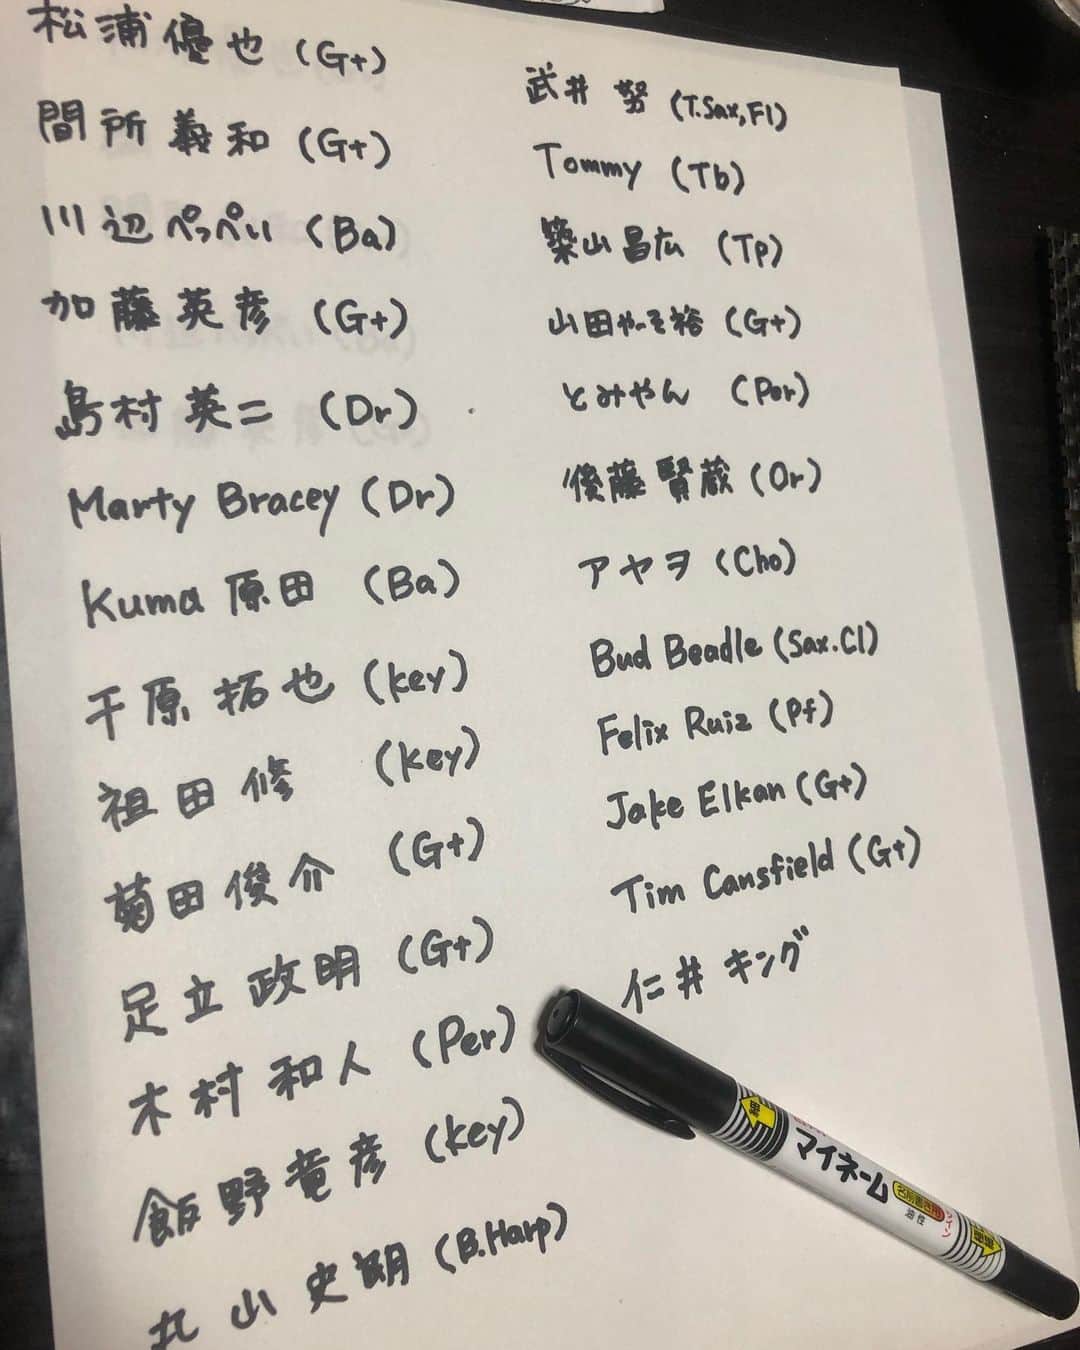 松浦優也 (Gt)
間所義和 (Gt)
川辺ぺっぺい (Ba)
加藤英彦 (Gt)
島村英二 (Dr)
Marty Bracey (Dr)
Kuma 原田 (Ba)
千原拓也 (key)
祖田修 (key)
菊田俊介 (Gt)
足立政明 (Gt)
木村和人 (Per)
飯野竜彦 (key)
丸山史朗 (B.Harp)
武井 努 (T.Sax,Fl)
Tommy (Tb)
築山昌広 (Tp)
山田やーそ裕 (Gt)
とみやん (Per)
後藤賢蔵 (Or)
アヤヲ (Cho)
Bud Beadle (Sax.Cl)
Felix Ruiz (Pf)
Jake Elkan (Gt)
Tim Cansfield (Gt)
仁井 キング
マイネーム
名前書き用
油性
ツイン